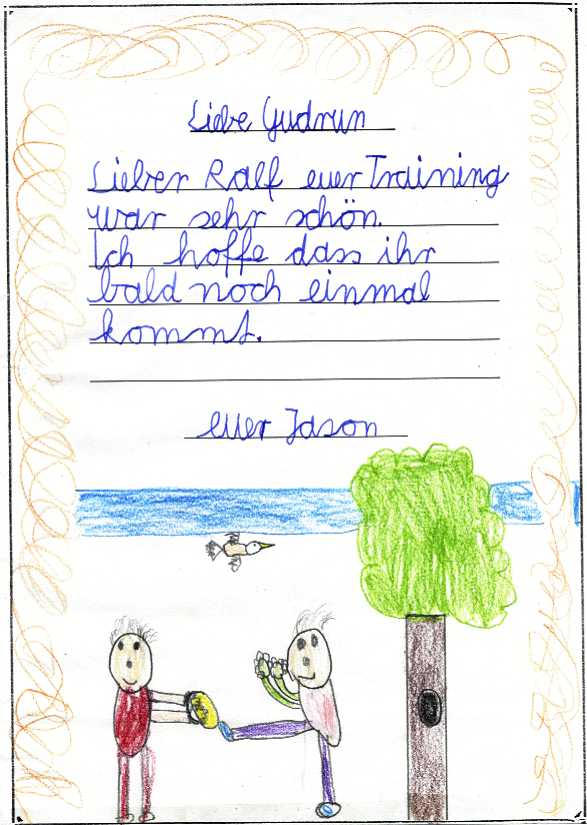 Liebe Gudrun
Lieber Ralf euer Training
war sehr schön.
Ich hoffe dass ihr
bald noch einmal
kommt.
euer Jason